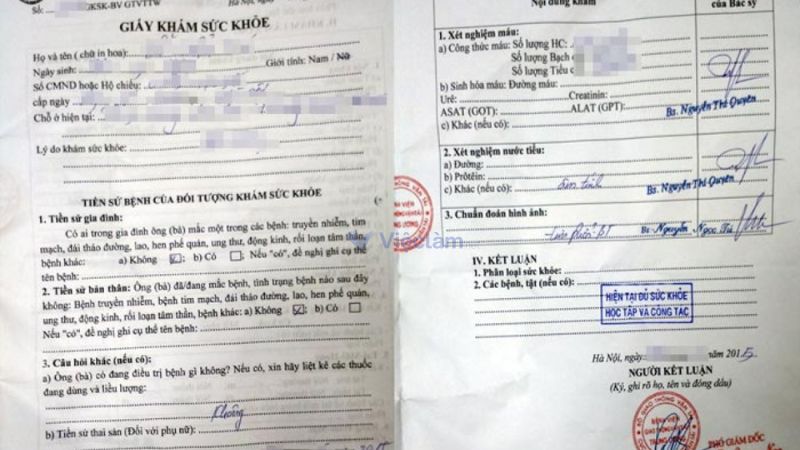 Số: GKSK-BV GTVTTW
Hà Nội,
GIẤY KHÁM SỨC KHỎE
Họ và tên ( chữ in hoa):
Ngày sinh: Giới tính: Nam / Nữ
Số CMND hoặc Hộ chiếu:
cấp ngày
Chỗ ở hiện tại:
Lý do khám sức khỏe:
TIỀN SỬ BỆNH CỦA ĐỐI TƯỢNG KHÁM SỨC KHỎE
1. Tiền sử gia đình:
Có ai trong gia đình ông (bà) mắc một trong các bệnh: truyền nhiễm, tim
mạch, đái tháo đường, lao, hen phế quản, ung thư, động kinh, rối loạn tâm thần,
bệnh khác: a) Không ☑; b) Có ☐; Nếu "có", đề nghị ghi cụ thể
tên bệnh:
2. Tiền sử bản thân: Ông (bà) đã/đang mắc bệnh, tình trạng bệnh nào sau đây
không: Bệnh truyền nhiễm, bệnh tim mạch, đái tháo đường, lao, hen phế quản,
ung thư, động kinh, rối loạn tâm thần, bệnh khác: a) Không ☑; b) Có ☐
Nếu "có", đề nghị ghi cụ thể tên bệnh:
3. Câu hỏi khác (nếu có):
a) Ông (bà) có đang điều trị bệnh gì không? Nếu có, xin hãy liệt kê các thuốc
đang dùng và liều lượng:
Không
b) Tiền sử thai sản (Đối với phụ nữ):
Nội dung khám
của Bác sỹ
1. Xét nghiệm máu:
a) Công thức máu: Số lượng HC:
Số lượng Bạch
Số lượng Tiểu
b) Sinh hóa máu: Đường máu:
Urê: Creatinin:
ASAT (GOT): ALAT (GPT):
c) Khác (nếu có):
Bs. Nguyễn Thị Quyên
2. Xét nghiệm nước tiểu:
a) Đường:
b) Prôtêin:
c) Khác (nếu có): âm tính
Bs. Nguyễn Thị Quyên
3. Chuẩn đoán hình ảnh:
BT Bs. Nguyễn Ngọc Tú
Việclàm
IV. KẾT LUẬN
1. Phân loại sức khỏe:
2. Các bệnh, tật (nếu có):
HIỆN TẠI ĐỦ SỨC KHỎE
HỌC TẬP VÀ CÔNG TÁC
Hà Nội, ngày năm 2015
NGƯỜI KẾT LUẬN
(Ký, ghi rõ họ, tên và đóng dấu)
BỆNH VIỆN
GIAO THÔNG VẬN TẢI
TRUNG ƯƠNG
PHÓ GIÁM ĐỐC